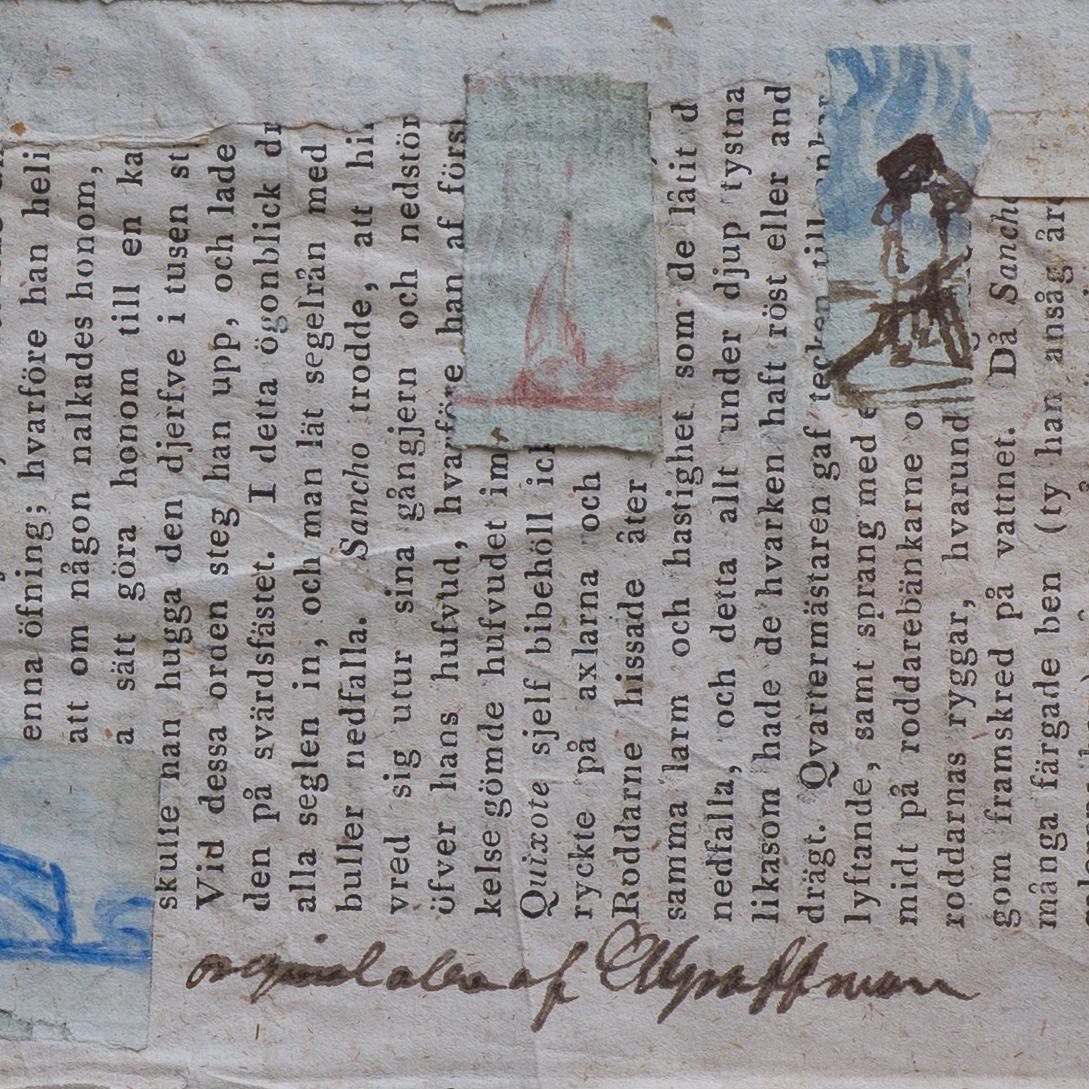 enna öfning; hvarföre han heli
att om någon nalkades honom,
a sätt göra honom till en ka
skulle han hugga den djerfve i tusen st
Vid dessa orden steg han upp, och lade
den på svärdsfästet. I detta ögonblick dr
alla seglen in, och man lät segelrån med
buller nedfalla. Sancho trodde, att hi
vred sig utur sina gångjern och nedstör
öfver hans hufvud, hvarföre han af förs
kelse gömde hufvudet im
Quixote sjelf bibehöll ick
ryckte på axlarna och
Roddarne hissade åter
samma larm och hastighet som de låtit d
nedfalla, och detta allt under djup tystna
likasom hade de hvarken haft röst eller and
drägt. Qvartermästaren gaf tecken till
lyftande, samt sprang med e
midt på roddarebänkarne o
roddarnas ryggar, hvarund
gom framskred på vattnet. Då Sancho
många färgade ben (ty han ansåg åro
original af